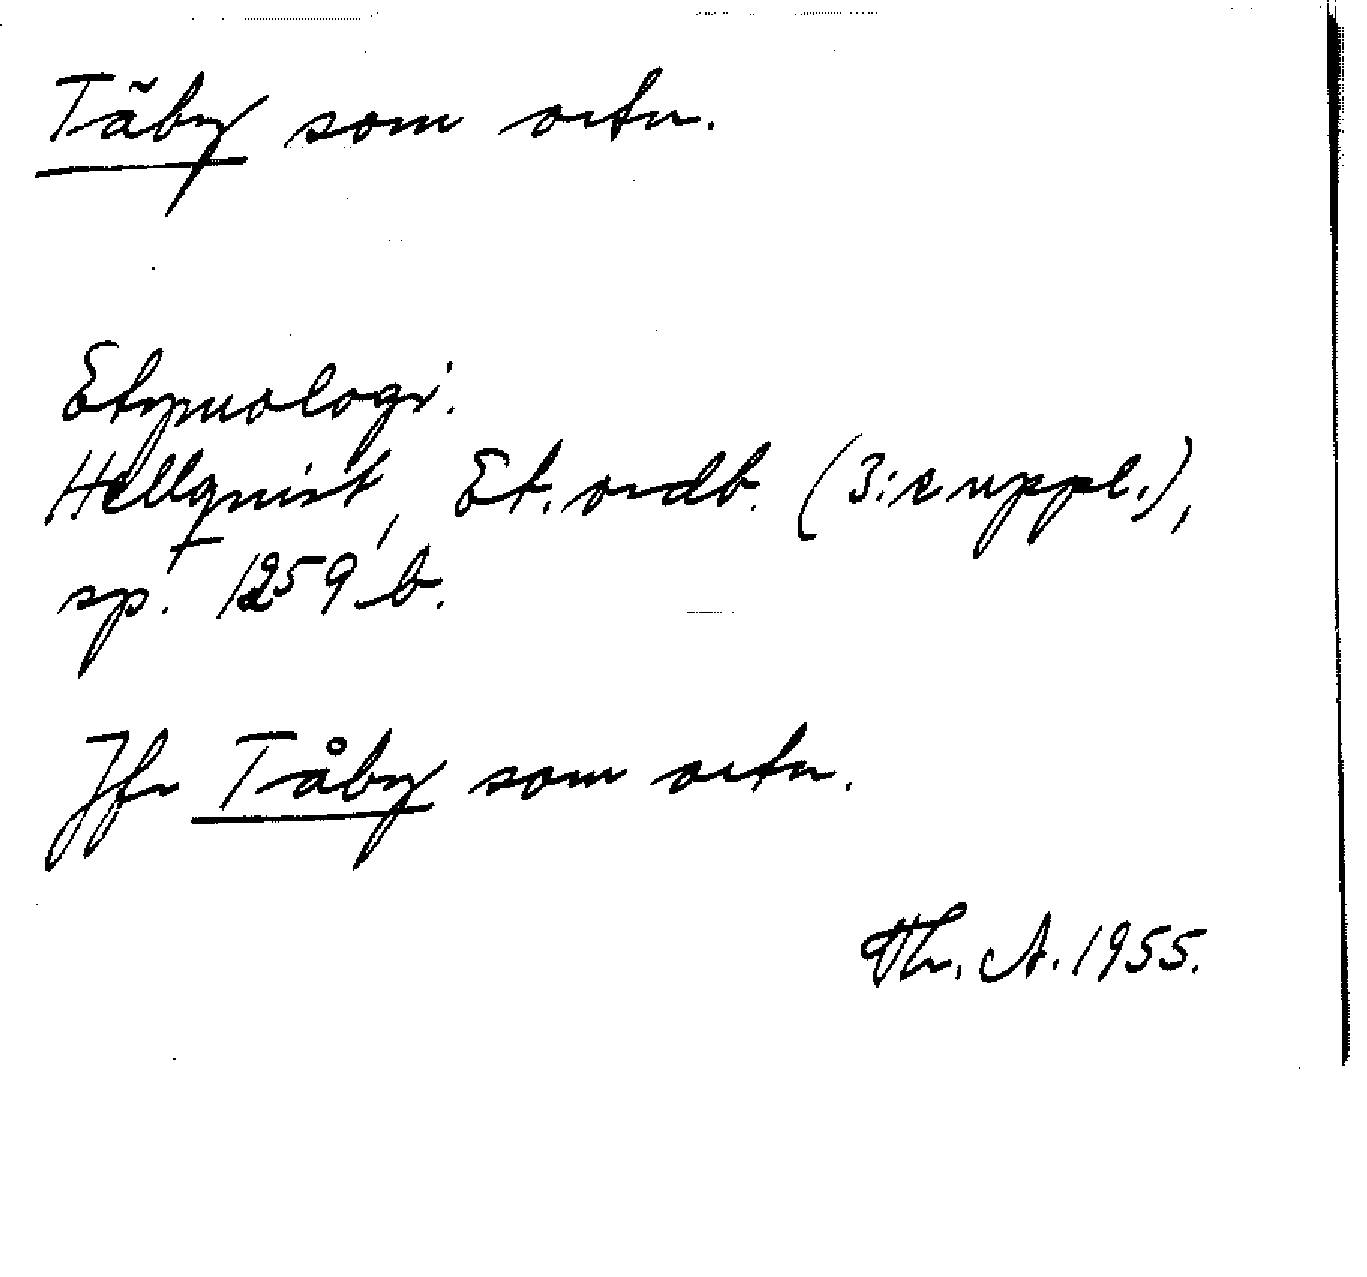 Täby som ortn.
Etymologi.
Hellquist, Et. ordb. (3:e uppl.),
sp. 1259 b.
Jfr Tåby som ortn.
Th. A. 1955.